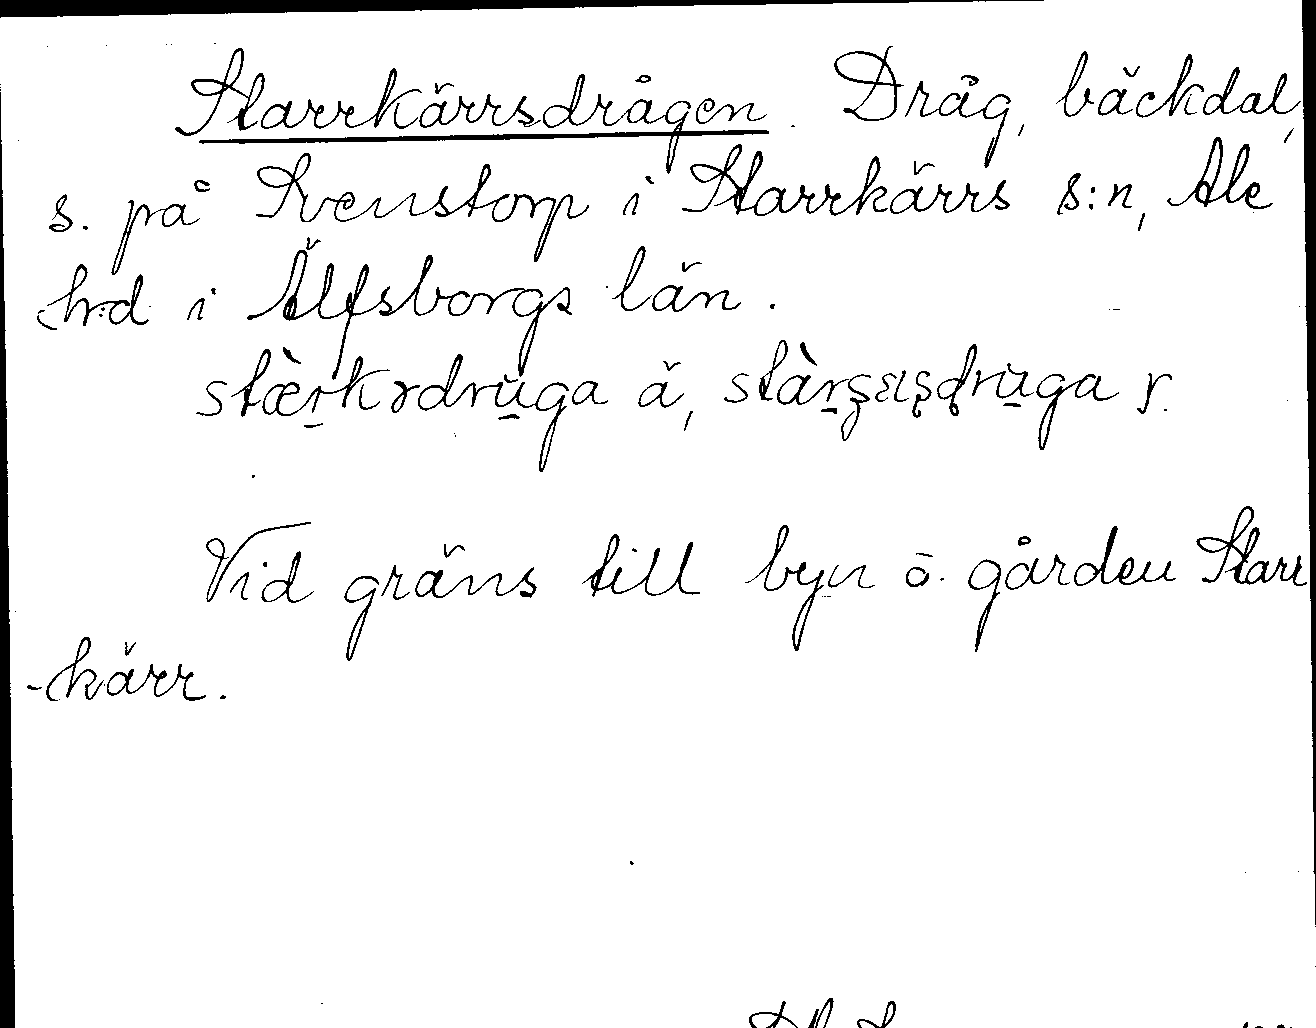 Starrkärrsdrågen. Dråg, bäckdal,
s. på Svenstorp i Starrkärrs s:n, Ale
hrd i Älfsborgs län.
ä, y.
Vid gräns till byn o. gården Starr
-kärr.